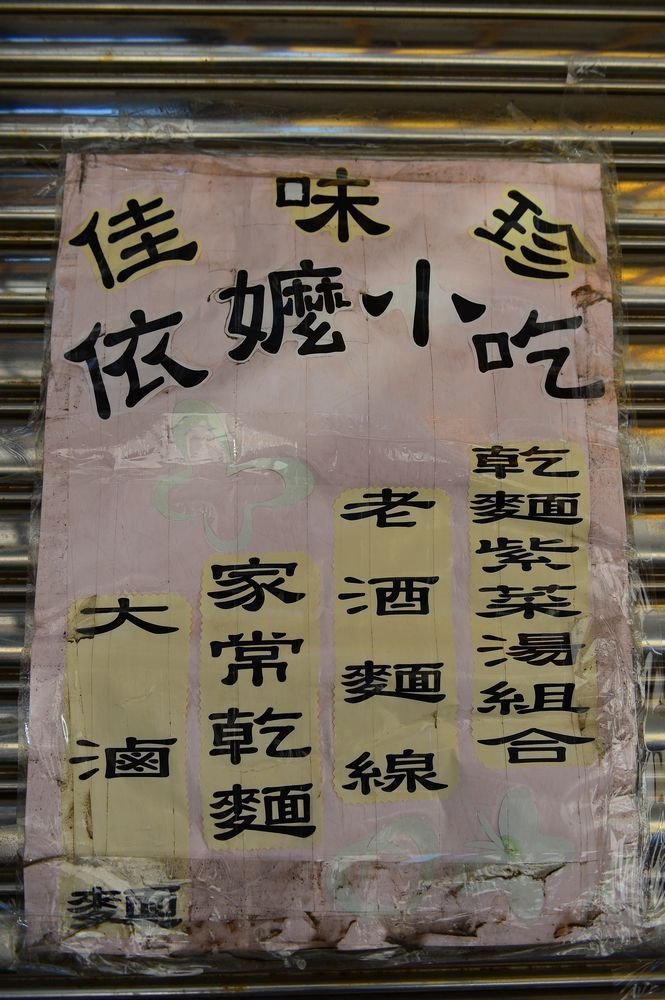 佳味珍
依嬤小吃
乾麵紫菜湯組合
老酒麵線
家常乾麵
大滷麵